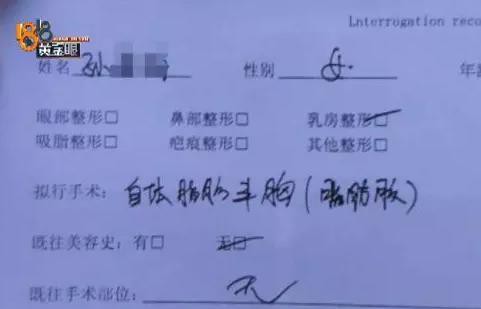 188
黄金眼
Lnterrogation reco
姓名 孙 性别 女 年
眼部整形□ 鼻部整形□ 乳房整形□
吸脂整形□ 疤痕整形□ 其他整形□
拟行手术: 自体脂肪丰胸(脂肪胶)
既往美容史: 有□ 无□
既往手术部位: 无